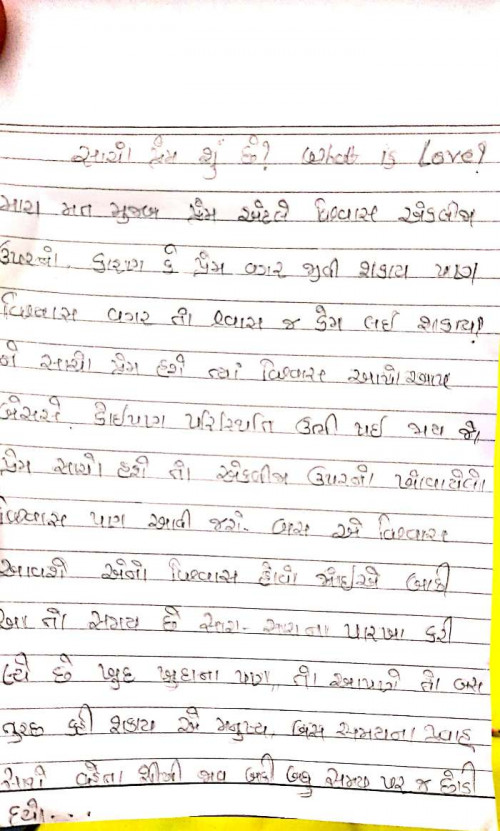 સાચો પ્રેમ શું છે? What is Love?
મારા મત મુજબ પ્રેમ એટલે વિશ્વાસ એકબીજા
ઉપરનો. કારણ કે પ્રેમ વગર જીવી શકાય પણ
વિશ્વાસ વગર તો શ્વાસ જ કેમ લઈ શકાય?
જો સાચો પ્રેમ હશે ત્યાં વિશ્વાસ આપોઆપ
બેસશે. કોઈપણ પરિસ્થિતિ ઉભી થઈ જાય જો
પ્રેમ સાચો હશે તો એકબીજા ઉપરનો ખોવાયેલો
વિશ્વાસ પણ આવી જશે. બસ એ વિશ્વાસ
આવશે એનો વિશ્વાસ હોવો જોઈએ બાકી
આ તો સમય છે સારા-સારાના પારખા કરી
લ્યે છે ખુદ ખુદાના પણ, તો આપણે તો બસ
કરી શકાય એ મનુષ્ય, બસ સમયના
સાથે વહેતા શીખી જાવ બાકી બધુ સમય પર જ છોડી
દયો...